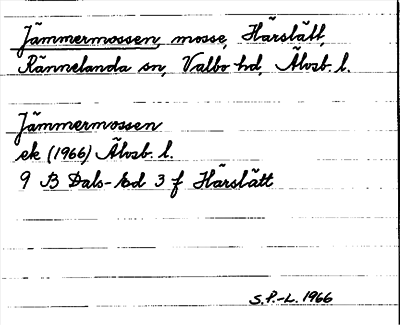 Jämmermossen, mosse, Härslätt,
Rännelanda sn, Valbo hd, Älvsb. l.
Jämmermossen
ek (1966) Älvsb. l.
9 B Dals-Ed 3 f Härslätt
S.P.-L. 1966